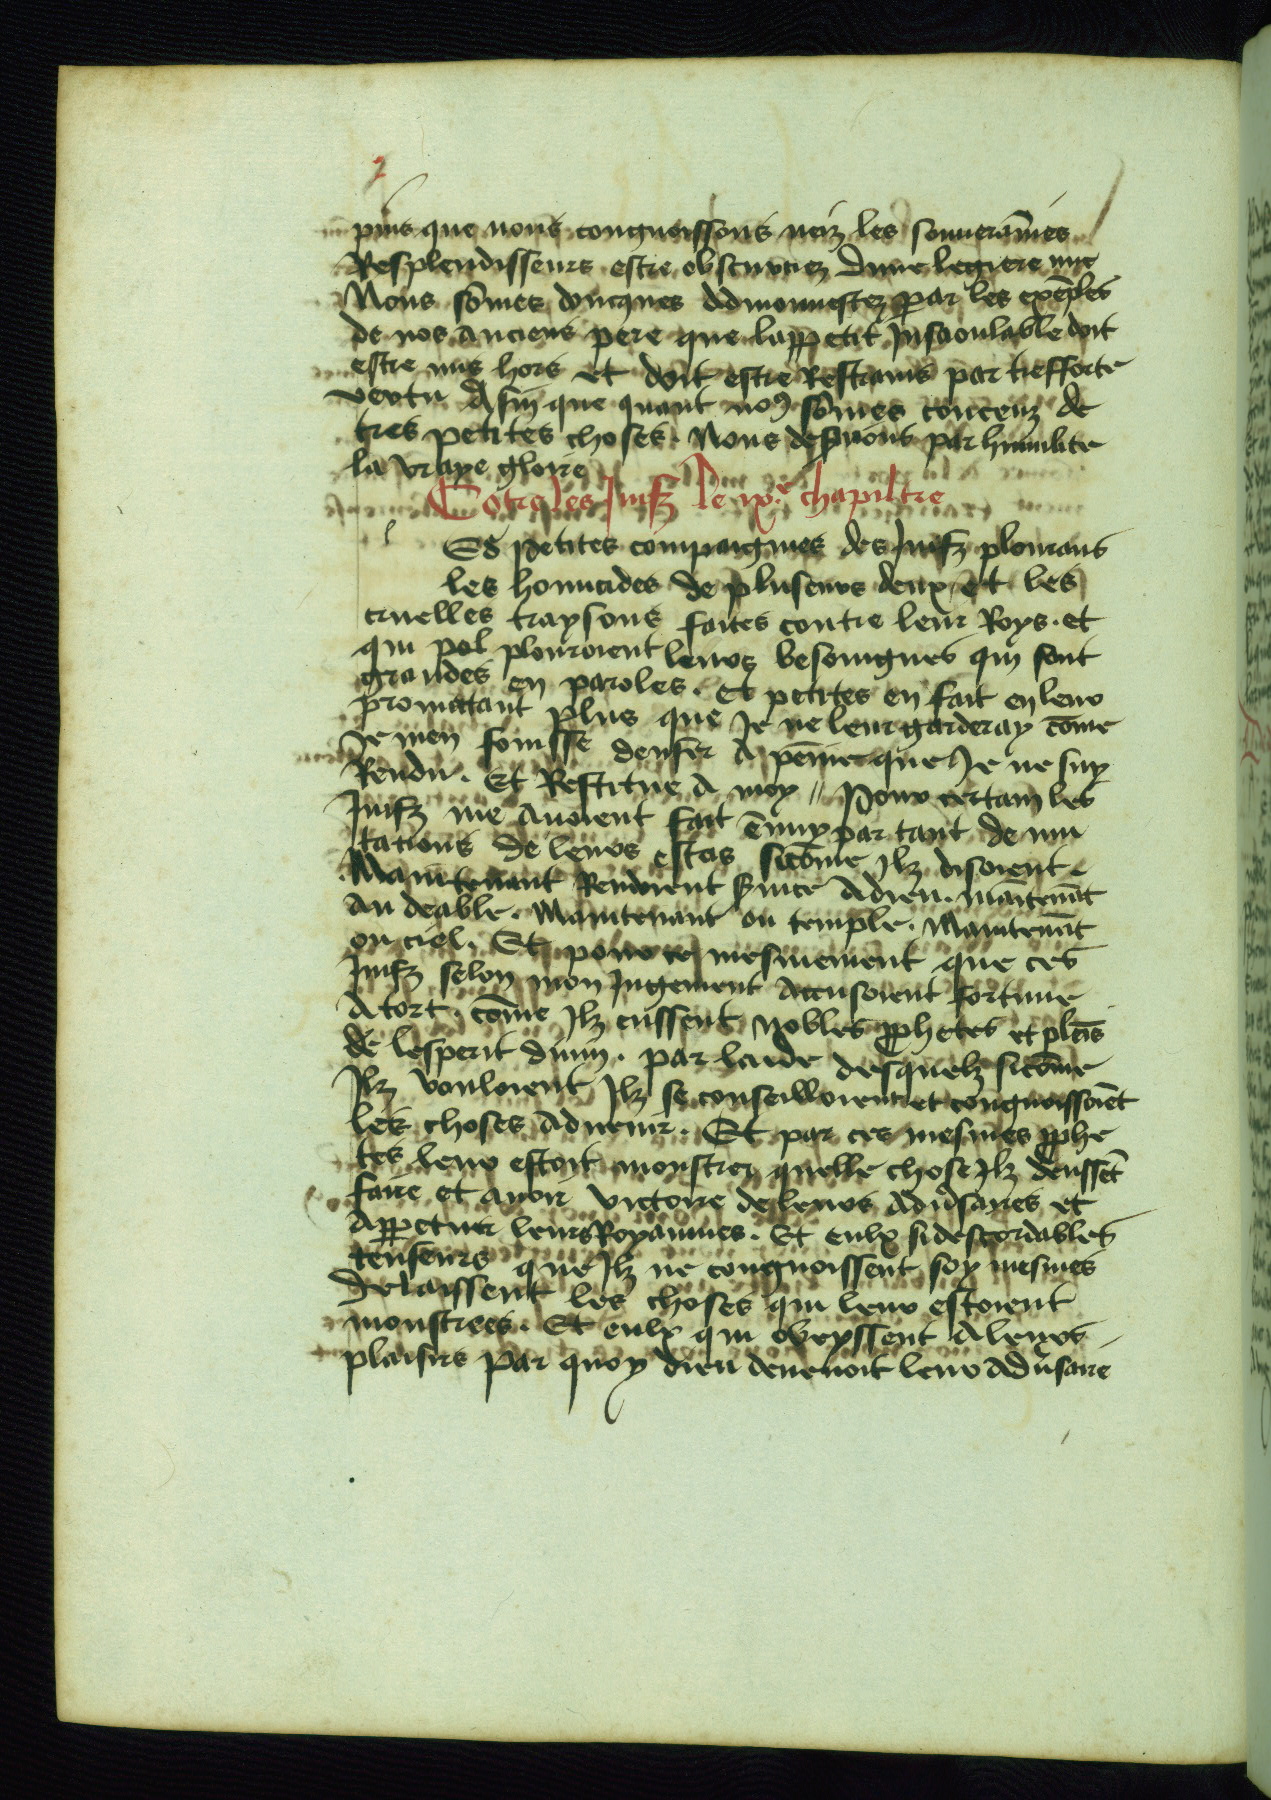 puis que nous congnoissons neiz les souuerāines
Resplendisseurs estre obscurciez dune legiere nue
Nous sōmes doncques Admonnestez par les exēples
de nos anciens pere que lappetit Insaoulable doit
estre mis hors et doit estre Restrains par tresforte
vertu Afin que quant noꝯ sōmes contens de
tres petites choses. Nous desirons par humilite
la vraye gloire
Cōtre les Juifz Le ixᵉ chapiltre
Es petites compaignies des Juifz plourans
les homicides de pluseurs deulx et les
cruelles traysons faites contre leur Roys. et
qui pol plouroient leurs besoingnes qui sont
grandes en paroles. Et petites en fait en leur
promittant plus que Je ne leur garderay cōme
Je men fouisse denfer A pēine que Je ne suy
Rendu. Et Restitue A moy // Pour certain les
Juifz me Auoient fait ēnuy par tant de mu
tations de leurs estas sicōme Ilz disoient.
Maintenant Rendoient seruice A dieu. maītenāt
au deable. Maintenant ou temple. Maintenāt
ou ciel. Et pour ce mesmement que ces
Juifz selon mon Jugement Accusoient fortune
A tort. cōme Ilz eussent nobles prophetes et plaīs
de lesperit diuin. par laide desquelz sicōme
Ilz vouloient Ilz se conseilloient et congnoissoiēt
les choses Aduenir. Et par ces mesmes prophe
tes leur estoit monstrer quelle chose Ilz deussēt
faire et auoir victoire de leurs Aduersaires et
Appetuer leurs Royaumes. Et eulx si descordables
tenseurs que Ilz ne congnoissent soy mesmes
Delaissent les choses qui leur estoient
monstrees. Et eulx qui obeyssent A leurs
plaisirs par quoy dieu deuenoit leur Aduersaire